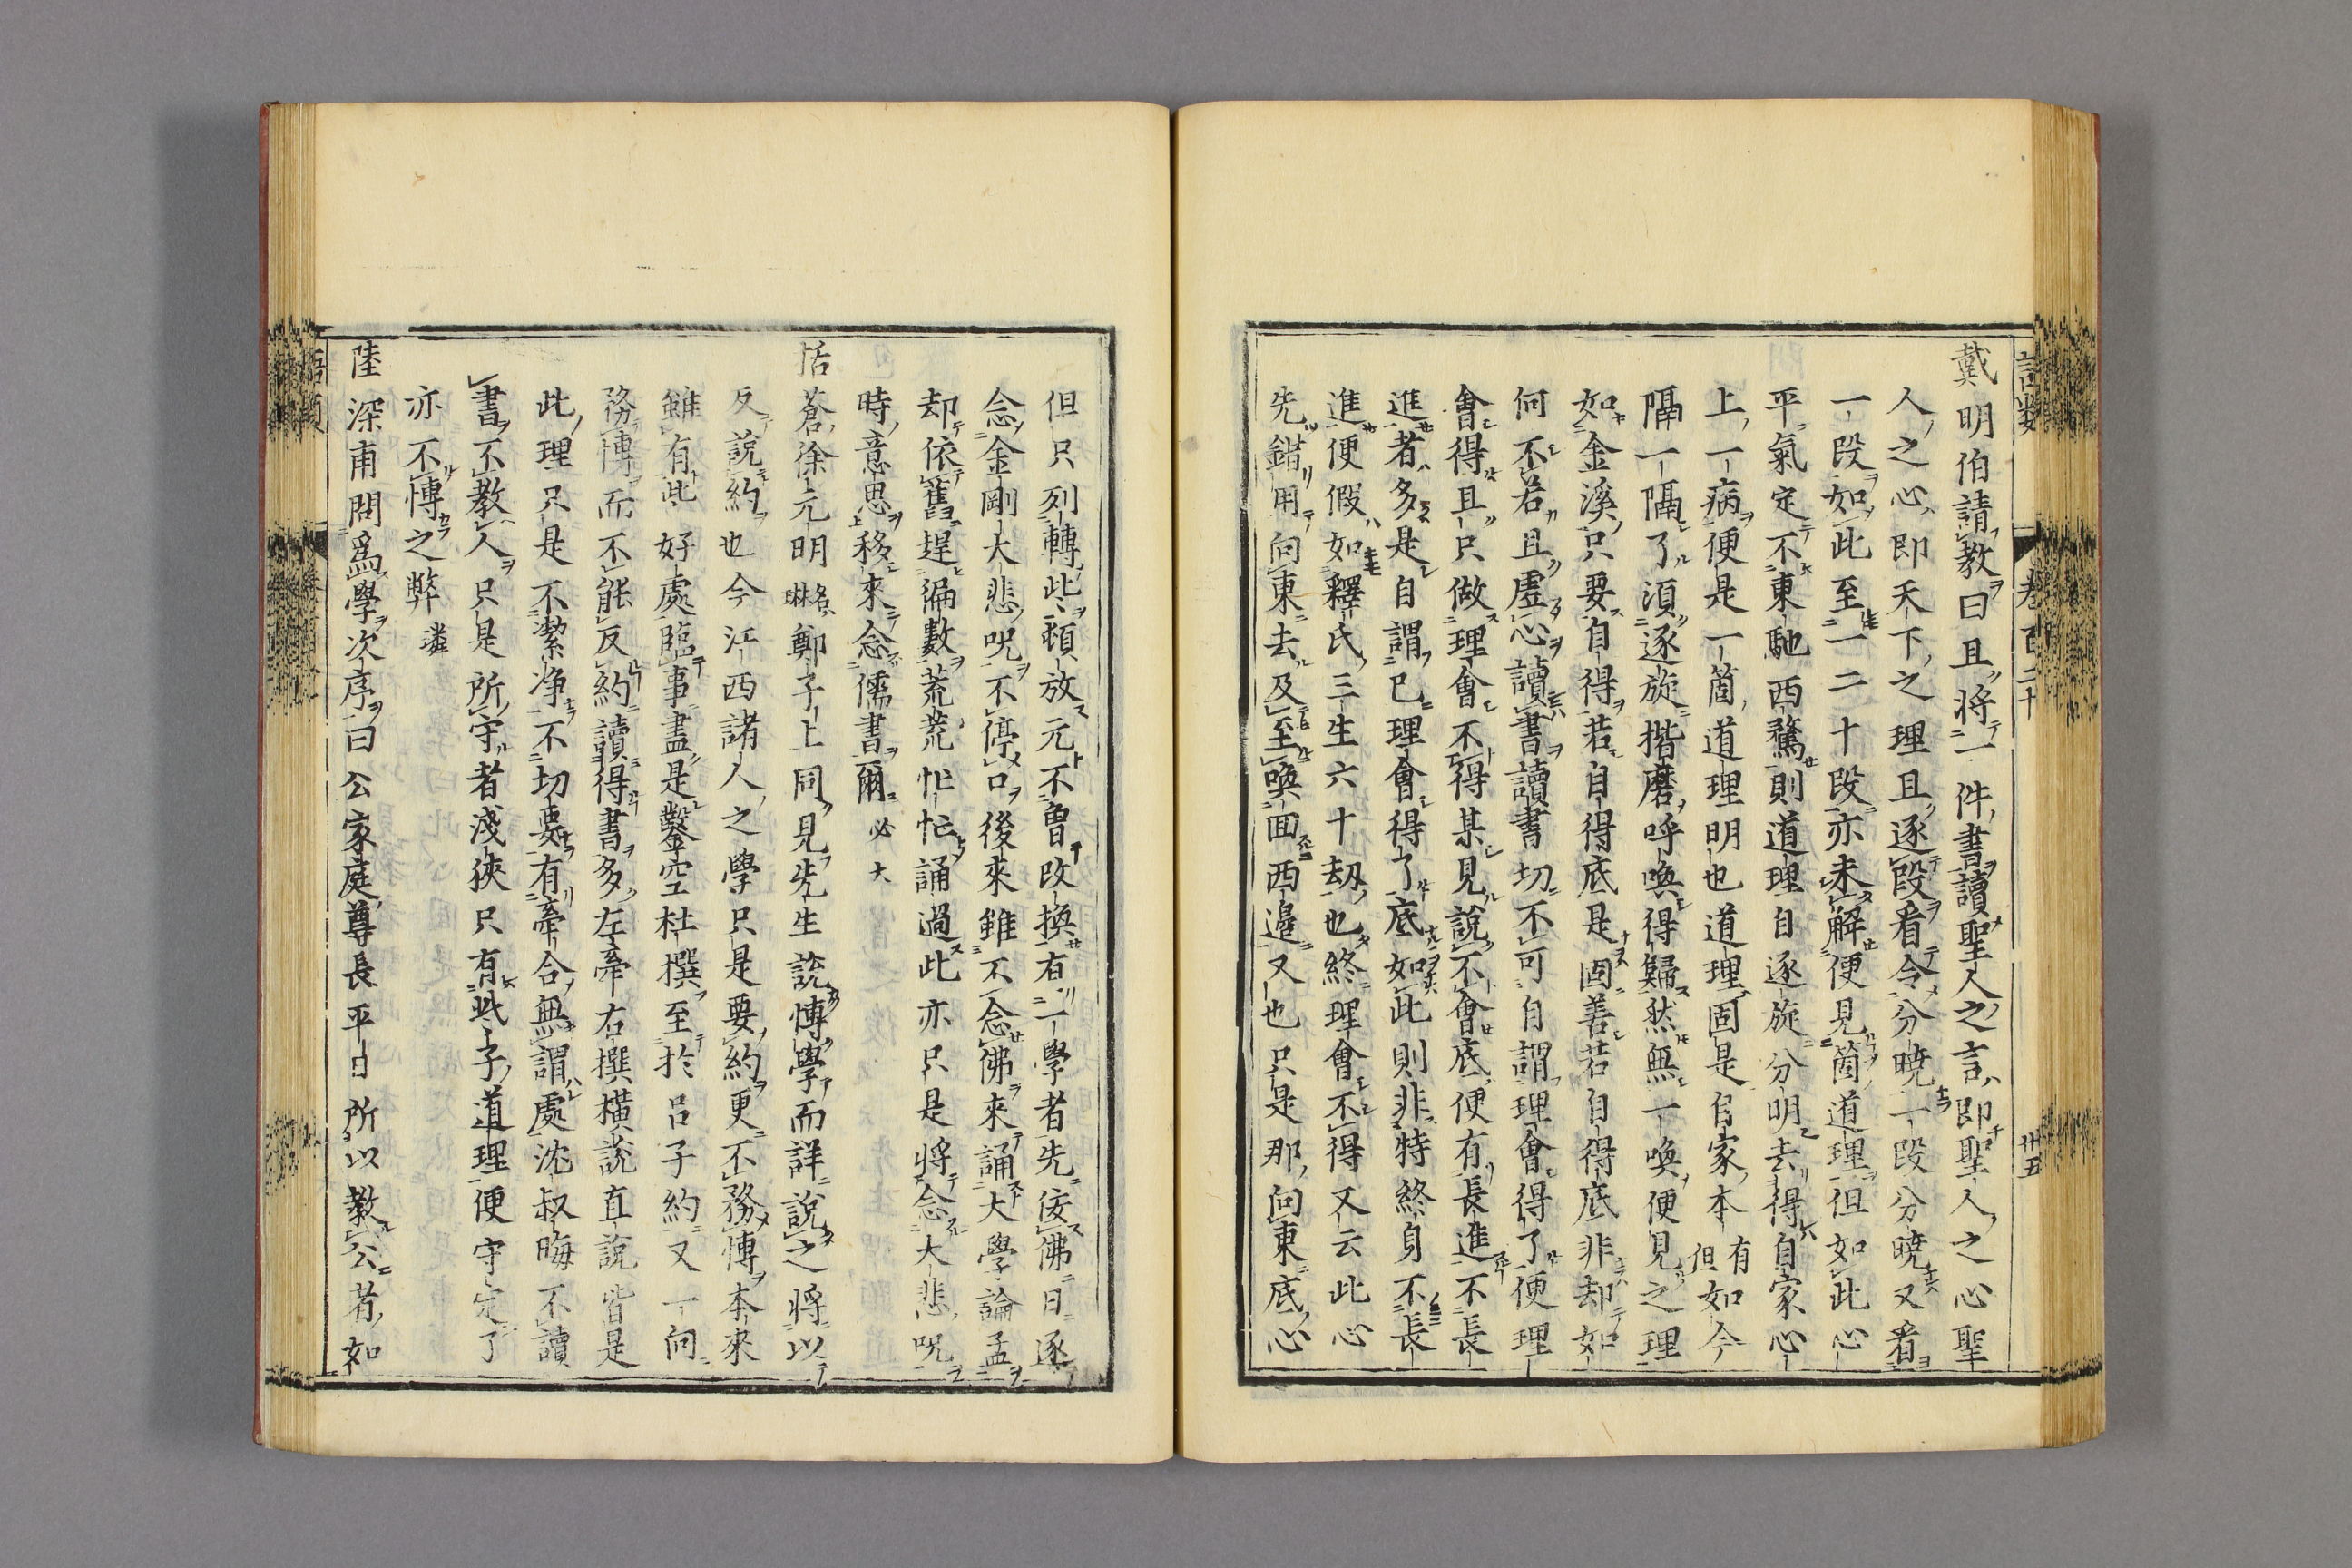 語類
卷百二十
廿五
戴明伯請教曰且將一件書讀聖人之言即聖人之心聖
人之心即天下之理且逐段看令分曉一段分曉又看
一段如此至一二十段亦未解便見箇道理但如此心
平氣定不東馳西騖則道理自逐旋分明去得自家心
上一病便是一箇道理明也道理固是自家本有但如今
隔一隔了湏逐旋揩磨呼喚得歸然無一喚便見之理
如金溪只要自得若自得底是固善若自得底非却如
何不若且虛心讀書讀書切不可自謂理會得了便理
會得且只做理會不得某見說不會底便有長進不長
進者多是自謂已理會得了底如此則非特終身不長
進便假如釋氏三生六十劫也終理會不得又云此心
先錯用向東去及至喚囬西邊又也只是那向東底心
但只列轉些頓放元不曽改換有一學者先佞佛日逐
念金剛大悲呪不停口後來雖不念佛來誦大學論孟
却依舊趕徧數荒荒忙忙誦過此亦只是將念大悲呪
時意思移來念儒書爾 必大
括蒼徐元明 名琳 鄭子上同見先生說博學而詳說之將以
反說約也今江西諸人之學只是要約更不務博本來
雖有些好處臨事盡是鑿空杜撰至於呂子約又一向
務博而不能反約讀得書多左牽右撰橫說直說皆是
此理只是不潔净不切要有牽合無謂處沈叔晦不讀
書不教人只是所守者淺狹只有些子道理便守定了
亦不博之弊 璘
陸深甫問爲學次序曰公家庭尊長平日所以教公者如
語類